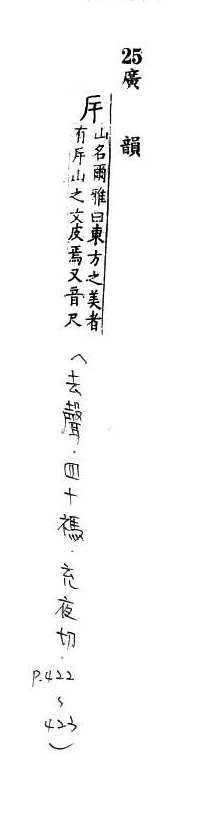 25廣韻
斥
山名爾雅曰東方之美者
有斥山之文皮焉又音尺
(去聲.四十禡.充夜切.
P.422
~
423)